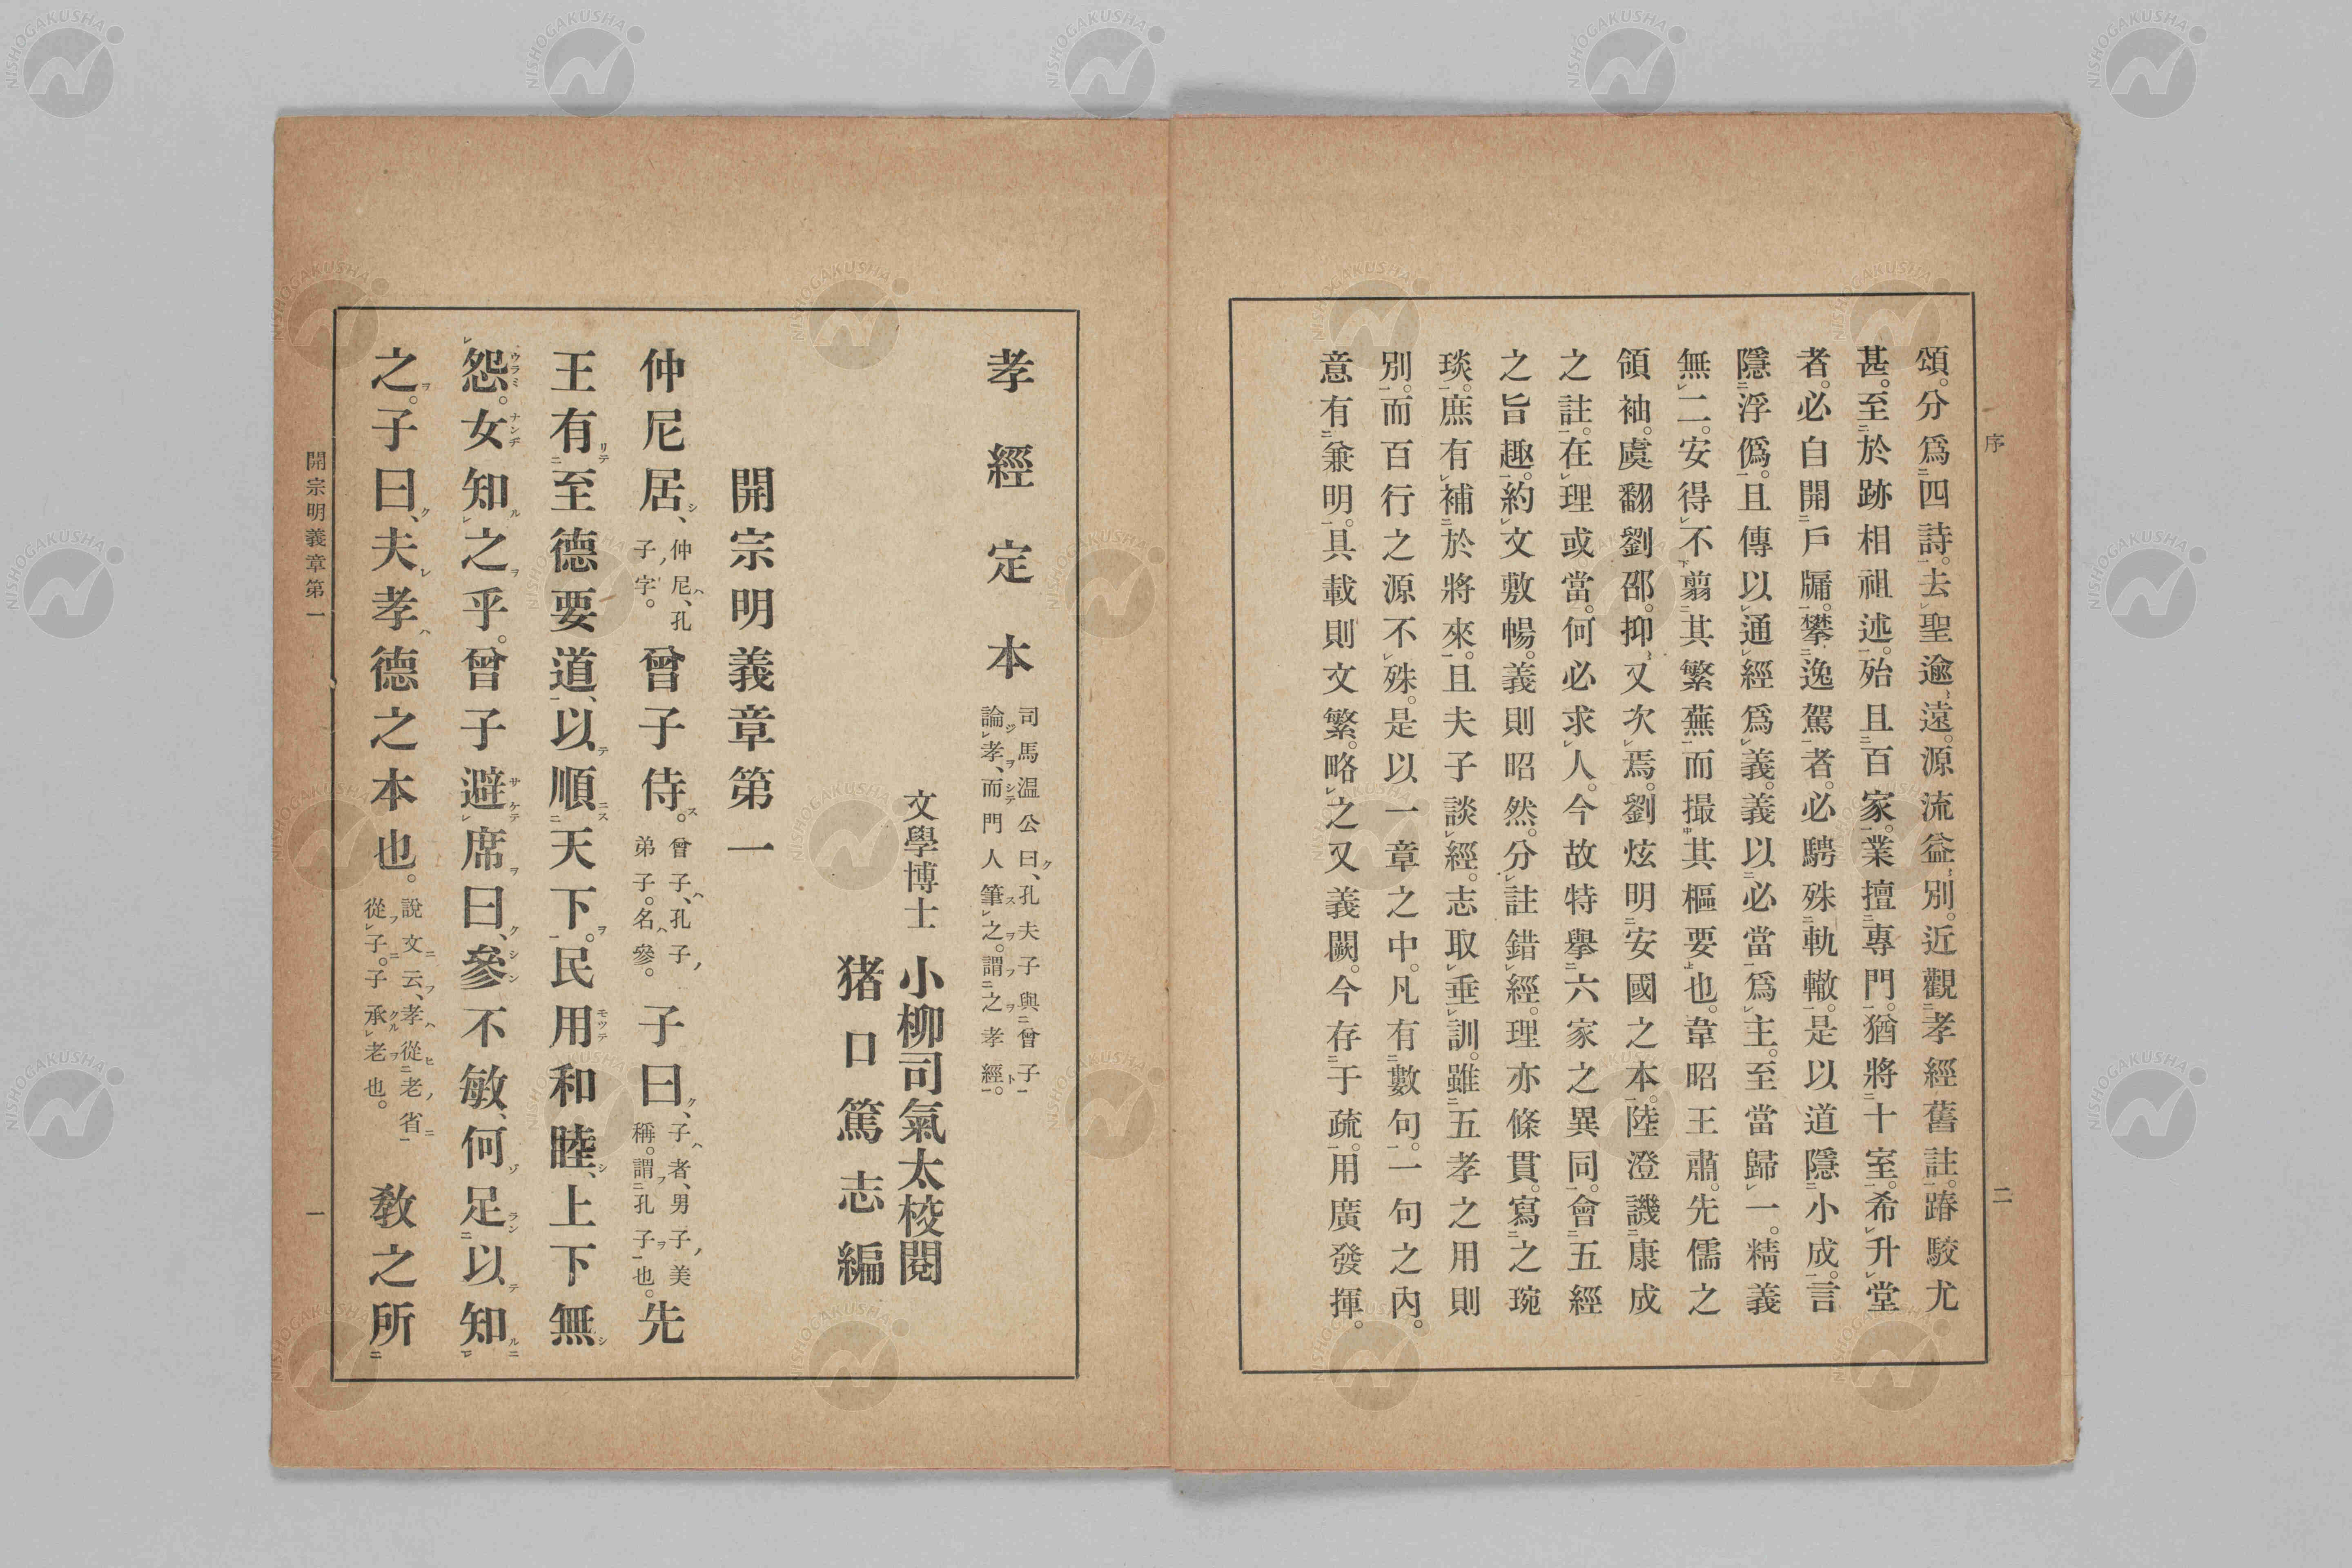 序
二
頌。分爲四詩。去聖逾遠。源流益別。近觀孝經舊註。踳駮尤
甚。至於跡相祖述。殆且百家。業擅專門。猶將十室。希升堂
者。必自開戶牖。攀逸駕者。必騁殊軌轍。是以道隱小成。言
隱浮僞。且傳以通經爲義。義以必當爲主。至當歸一。精義
無二。安得不翦其繁蕪而撮其樞要也。韋昭王肅。先儒之
領袖。虞翻劉邵。抑又次焉。劉炫明安國之本。陸澄譏康成
之註。在理或當。何必求人。今故特擧六家之異同。會五經
之旨趣。約文敷暢。義則昭然。分註錯經。理亦條貫。寫之琬
琰。庶有補於將來。且夫子談經。志取垂訓。雖五孝之用則
別。而百行之源不殊。是以一章之中。凡有數句。一句之內。
意有兼明。具載則文繁。略之又義闕。今存于疏。用廣發揮。
孝經定本 司馬温公曰、孔夫子與曾子論孝、而門人筆之。謂之孝經。
文學博士 小柳司氣太校閱
猪口篤志編
開宗明義章第一
仲尼居、仲尼、孔子字。曾子侍。曾子、孔子弟子。名參。子曰、子者、男子美稱。謂孔子也。先
王有至德要道、以順天下。民用和睦、上下無
怨。女知之乎。曾子避席曰、參不敏、何足以知
之。子曰、夫孝德之本也。說文云、孝從老省從子。子承老也。敎之所
開宗明義章第一
一
NISHOGAKUSHA